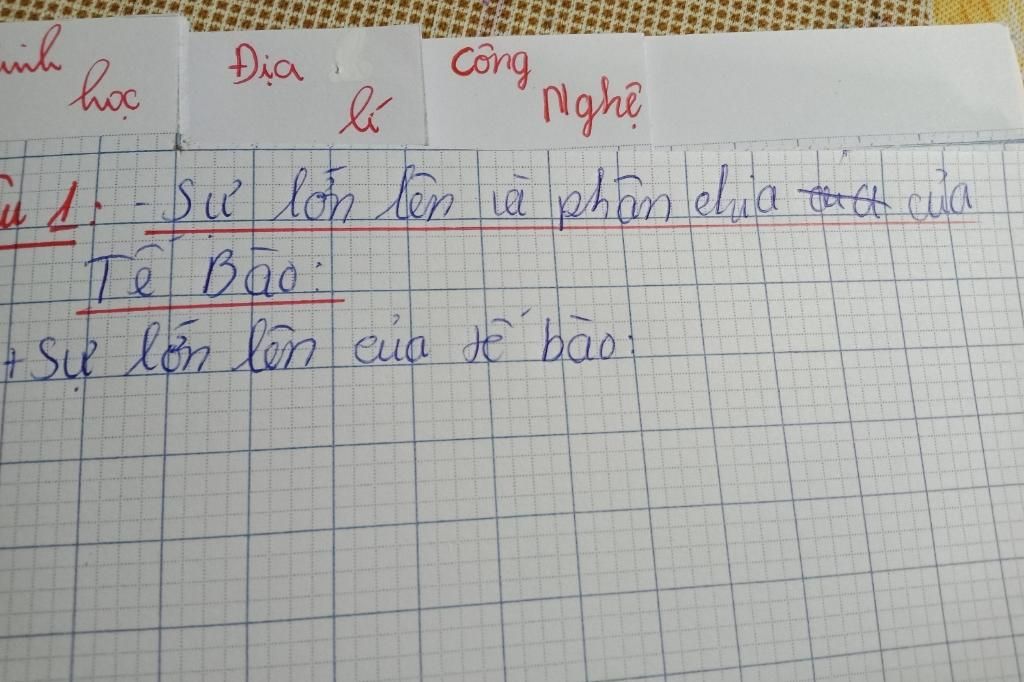 inh học
Địa lí
Công Nghệ
u 1: - Sự lớn lên và phân chia của
Tế Bào:
+ Sự lớn lên của tế bào: